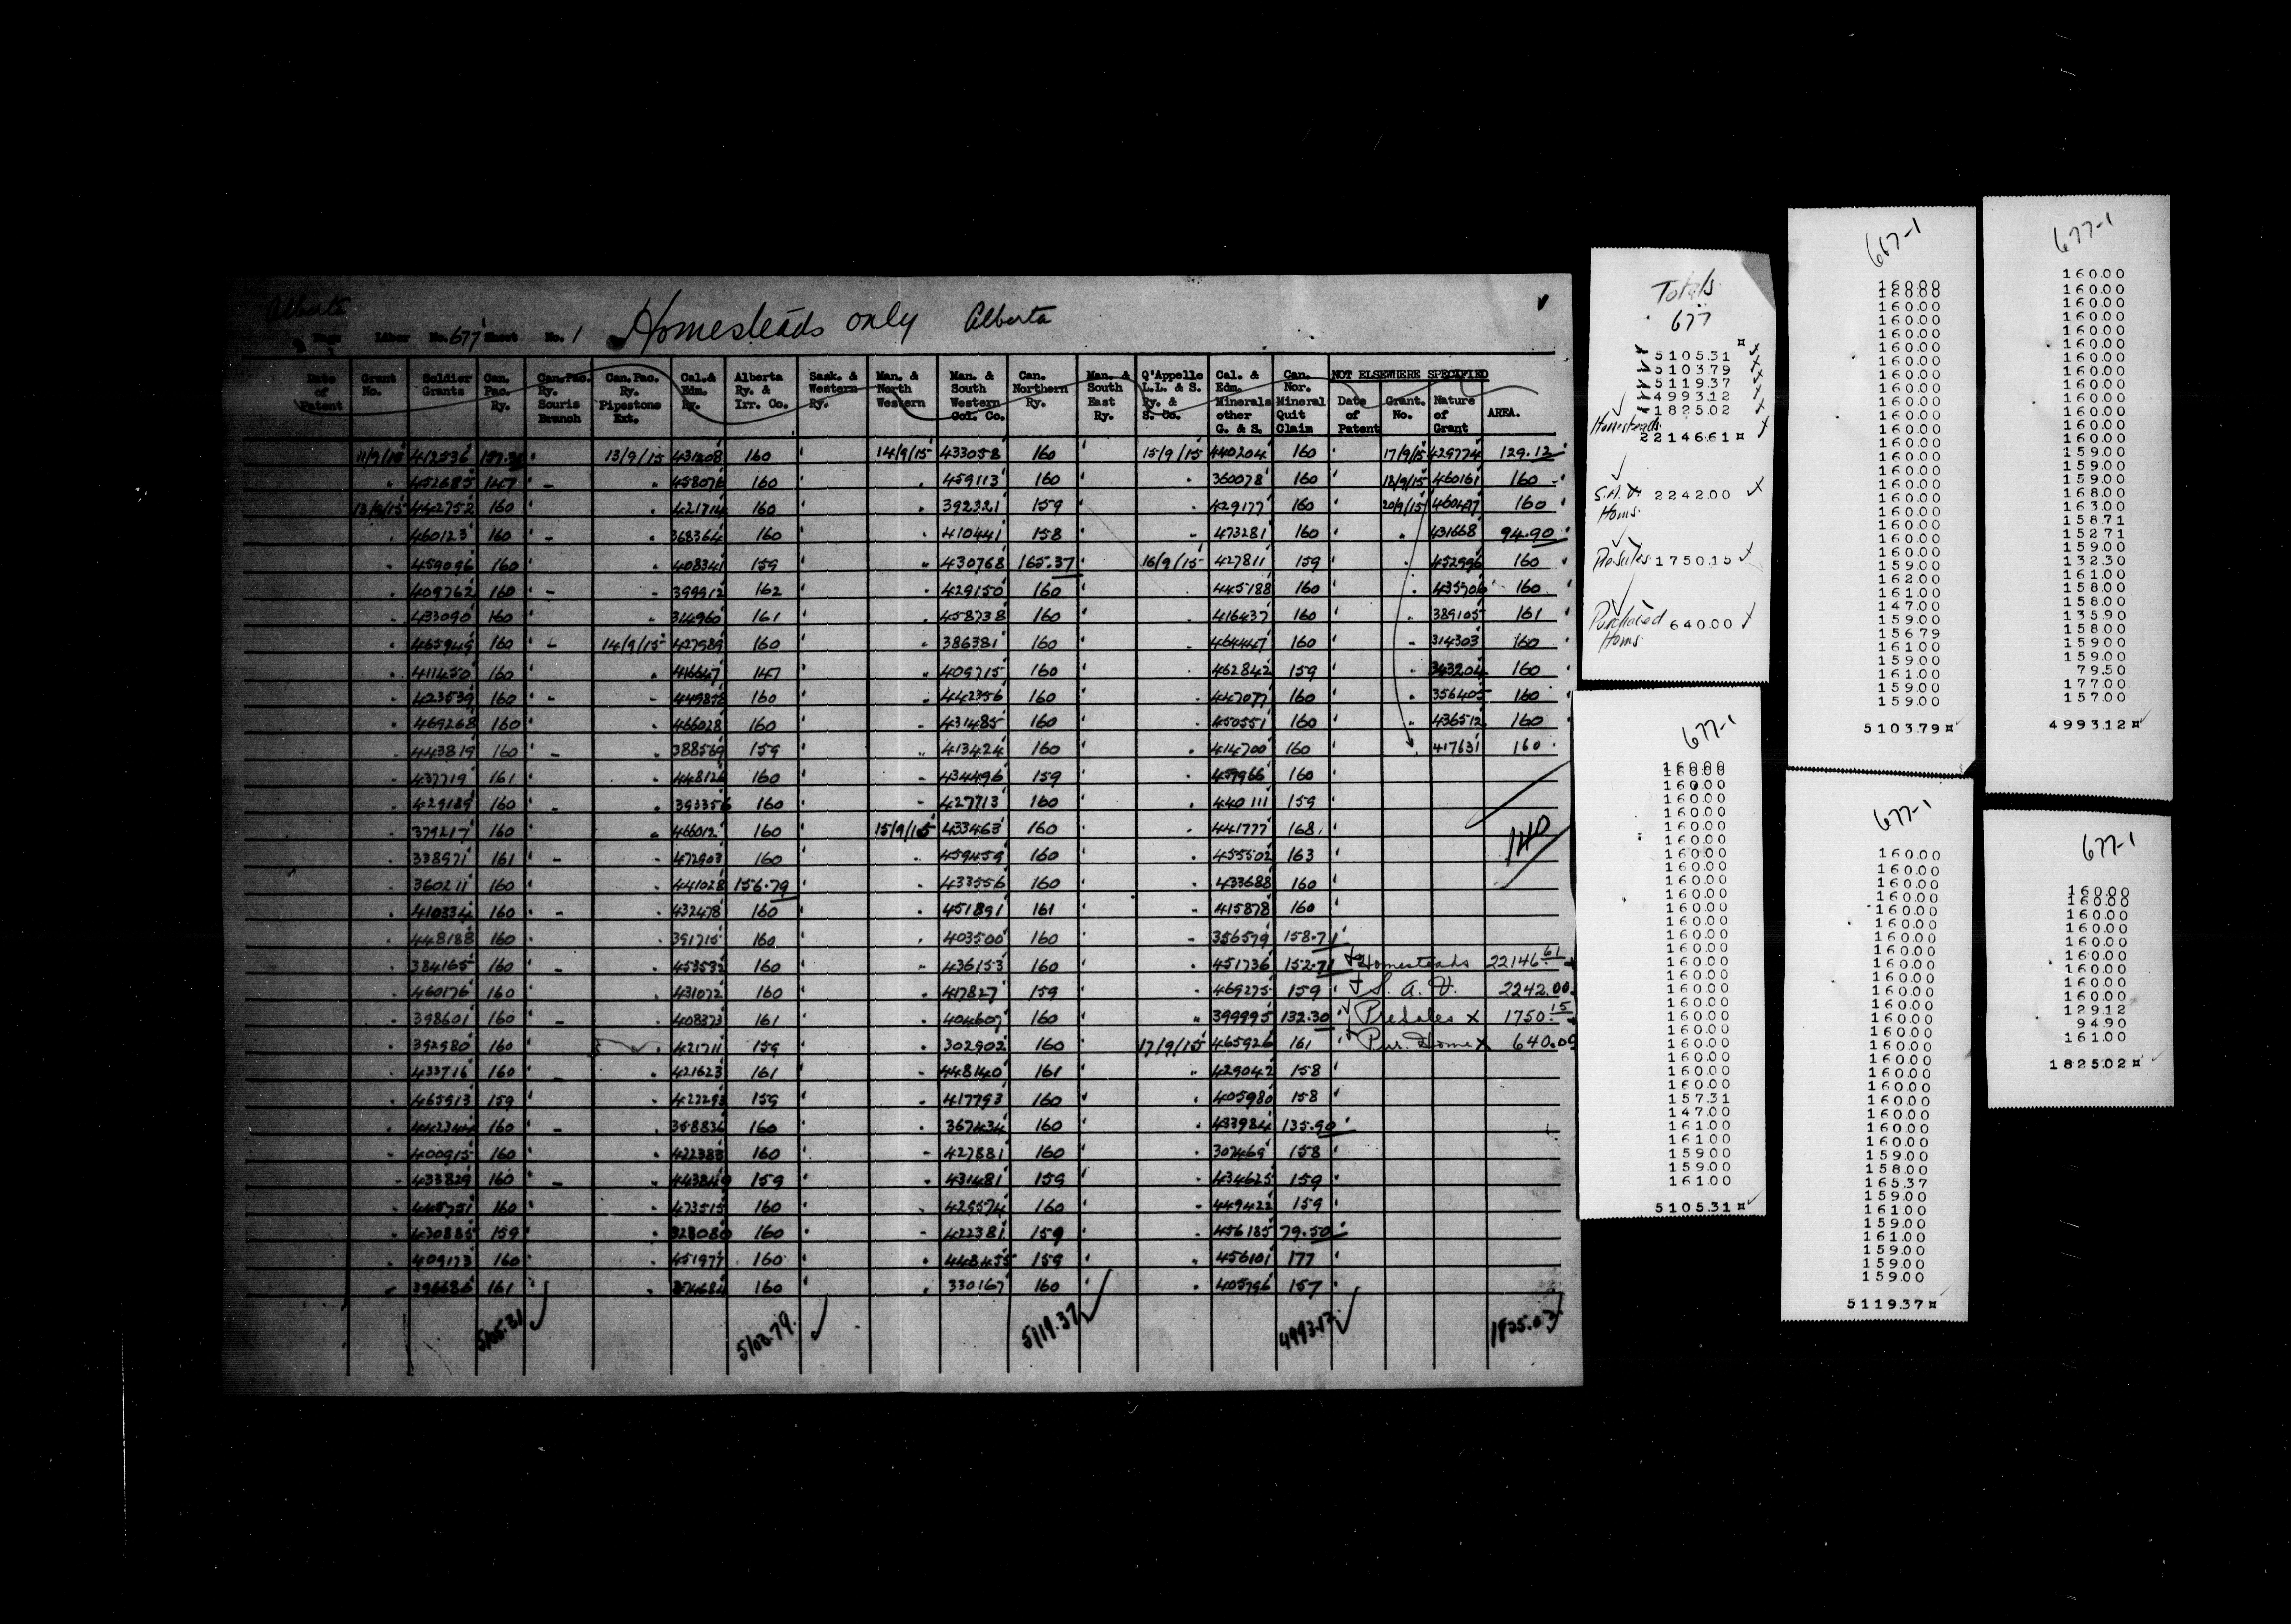 Alberta
Page 1 Liber No. 677 Sheet No. 1 Homesteads only Alberta
Date of Patent | Grant No. | Soldier Grants | Can. Pac. Ry. | Can. Pac. Ry. Souris Branch | Can. Pac. Ry. Pipestone Ext. | Cal. & Edm. Ry. | Alberta Ry. & Irr. Co. | Sask. & Western Ry. | Man. & North Western | Man. & South Western Col. Co. | Can. Northern Ry. | Man. & South East Ry. | Q'Appelle L.L. & S. Ry. & S. Co. | Cal. & Edm. Minerals other G. & S. | Can. Nor. Mineral Quit Claim | NOT ELSEWHERE SPECIFIED Date of Patent | Grant. No. | Nature of Grant | AREA.
11/9/15 412536 157.31 13/9/15 431208 160 14/9/15 433058 160 15/9/15 440204 160 17/9/15 429774 129.12
452685 147 458076 160 459113 160 360078 160 18/9/15 460161 160
13/9/15 442752 160 421714 160 392321 159 429177 160 20/9/15 460447 160
460123 160 368364 160 410441 158 473281 160 431668 94.90
459096 160 408341 159 430768 165.37 16/9/15 427811 159 452996 160
409762 160 399912 162 429150 160 445188 160 435906 160
433090 160 314960 161 458738 160 416437 160 389105 161
465949 160 14/9/15 427989 160 386381 160 464447 160 314303 160
411450 160 416647 147 409715 160 462842 159 343204 160
423539 160 449858 160 442356 160 447077 160 356405 160
469268 160 466028 160 431485 160 450551 160 436512 160
443819 160 388569 159 413424 160 414700 160 417631 160
437719 161 448126 160 434496 159 457966 160
429189 160 393356 160 427713 160 440111 159
379217 160 466012 160 15/9/15 433463 160 441777 168
338971 161 472903 160 459459 160 455502 163 140
360211 160 441028 156.79 433556 160 433688 160
410334 160 432478 160 451891 161 415878 160
448188 160 391715 160 403500 160 356579 158.71
384165 160 453592 160 436153 160 451736 152.71 Homesteads 22146.61
460176 160 431072 160 417827 159 469275 159 S. A. V. 2242.00
398601 160 408373 161 404607 160 399995 132.30 PreSales x 1750.15
392980 160 421711 159 302902 160 17/9/15 465926 161 Pur. Home x 640.00
433716 160 421623 161 448140 161 429042 158
465913 159 422293 159 417793 160 405980 158
442344 160 358836 160 367434 160 433984 135.90
400915 160 422383 160 427881 160 307469 158
433829 160 443849 159 431481 159 434625 159
445751 160 473515 160 429574 160 449422 159
430885 159 328080 160 422381 159 456185 79.50
409173 160 451977 160 448455 159 456101 177
396686 161 374684 160 330167 160 405796 157
5105.31 5103.79 5119.37 4993.12 1825.02
Totals
677
5105.31
5103.79
5119.37
4993.12
1825.02
Homesteads
22146.61
S.A.V. Homs. 2242.00
PreSales 1750.15
Purchased Homs 640.00
667-1
160.00
160.00
160.00
160.00
160.00
160.00
160.00
160.00
160.00
160.00
160.00
160.00
160.00
160.00
160.00
160.00
160.00
160.00
160.00
160.00
159.00
162.00
161.00
147.00
159.00
156.79
161.00
159.00
161.00
159.00
159.00
5103.79
677-1
160.00
160.00
160.00
160.00
160.00
160.00
160.00
160.00
160.00
160.00
160.00
160.00
160.00
159.00
160.00
159.00
168.00
163.00
158.71
152.71
159.00
132.30
161.00
158.00
158.00
135.90
158.00
159.00
159.00
79.50
177.00
157.00
4993.12
677-1
160.00
160.00
160.00
160.00
160.00
160.00
160.00
160.00
160.00
160.00
160.00
160.00
160.00
160.00
160.00
160.00
160.00
160.00
160.00
160.00
160.00
160.00
160.00
160.00
160.00
157.31
147.00
161.00
161.00
159.00
159.00
161.00
5105.31
677-1
160.00
160.00
160.00
160.00
160.00
160.00
160.00
160.00
160.00
160.00
160.00
160.00
160.00
160.00
160.00
160.00
160.00
160.00
160.00
160.00
160.00
160.00
159.00
158.00
165.37
159.00
161.00
159.00
161.00
159.00
159.00
5119.37
677-1
160.00
160.00
160.00
160.00
160.00
160.00
160.00
160.00
160.00
129.12
94.90
161.00
1825.02